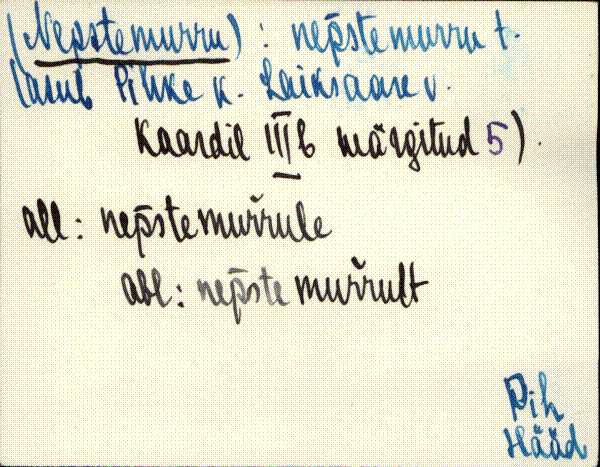 (Nepstemurru) : nep̄stemurru t.
(asub Pihke k. Laiksaare v.
Kaardil III b märgitud 5).
all : nep̄stemuřrule
abl : nep̄ste muřrult
Pih
Hääd